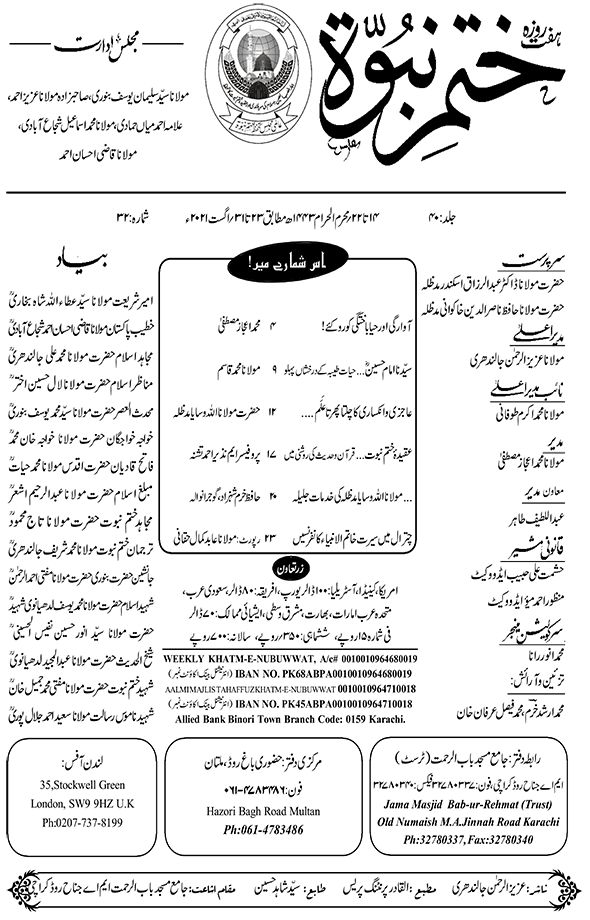 ہفت روزہ
ختم نبوۃ
مجلس ادارت
مولانا سید سلیمان یوسف بنوری، صاحبزادہ مولانا عزیز احمد،
علامہ احمد میاں حمادی، مولانا محمد اسماعیل شجاع آبادی،
مولانا قاضی احسان احمد
جلد: ۴۰
۱۴ تا ۲۲ محرم الحرام ۱۴۴۳ھ مطابق ۲۳ تا ۳۱ اگست ۲۰۲۱ء
شمارہ: ۳۲
سرپرست
حضرت مولانا ڈاکٹر عبدالرزاق اسکندر مدظلہ
حضرت مولانا حافظ ناصر الدین خاکوانی مدظلہ
مدیر اعلیٰ
مولانا عزیز الرحمن جالندھری
نائب مدیر اعلیٰ
مولانا محمد اکرم طوفانی
مدیر
مولانا محمد اعجاز مصطفیٰ
معاون مدیر
عبداللطیف طاہر
قانونی مشیر
حشمت علی حبیب ایڈووکیٹ
منظور احمد میؤ ایڈووکیٹ
سرکولیشن منیجر
محمد انور رانا
تزئین و آرائش:
محمد ارشد خرم، محمد فیصل عرفان خان
اس شمارے میں!
آوارگی اور حیا باختگی کو روکئے! ۴ محمد اعجاز مصطفیٰ
سیدنا امام حسینؓ... حیات طیبہ کے درخشاں پہلو ۹ مولانا محمد قاسم
عاجزی و انکساری کا چلتا پھرتا عَلَم.... ۱۲ حضرت مولانا اللہ وسایا مدظلہ
عقیدہ ختم نبوت... قرآن و حدیث کی روشنی میں ۱۷ پروفیسر ایم نذیر احمد تشنہ
...مولانا اللہ وسایا مدظلہ کی خدمات جلیلہ ۲۰ حافظ خرم شہزاد، گوجرانوالہ
چترال میں سیرت خاتم الانبیاء کانفرنسیں ۲۳ رپورٹ: مولانا عابد کمال حقانی
زرتعاون
امریکا، کینیڈا، آسٹریلیا: ۱۰۰ ڈالر یورپ، افریقہ: ۸۰ ڈالر، سعودی عرب،
متحدہ عرب امارات، بھارت، مشرق وسطی، ایشیائی ممالک: ۷۰ ڈالر
فی شمارہ ۱۵ روپے، ششماہی: ۳۵۰ روپے، سالانہ: ۷۰۰ روپے
WEEKLY KHATM-E-NUBUWWAT, A/c# 0010010964680019
IBAN NO. PK68ABPA0010010964680019 (انٹرنیشنل بینک اکاؤنٹ نمبر)
AALMIMAJLISTAHAFFUZKHATM-E-NUBUWWAT 0010010964710018
IBAN NO. PK45ABPA0010010964710018 (انٹرنیشنل بینک اکاؤنٹ نمبر)
Allied Bank Binori Town Branch Code: 0159 Karachi.
بیاد
امیر شریعت مولانا سید عطاء اللہ شاہ بخاریؒ
خطیب پاکستان مولانا قاضی احسان احمد شجاع آبادیؒ
مجاہد اسلام حضرت مولانا محمد علی جالندھریؒ
مناظر اسلام حضرت مولانا لال حسین اخترؒ
محدث العصر حضرت مولانا سید محمد یوسف بنوریؒ
خواجہ خواجگان حضرت مولانا خواجہ خان محمدؒ
فاتح قادیان حضرت اقدس مولانا محمد حیاتؒ
مبلغ اسلام حضرت مولانا عبدالرحیم اشعرؒ
مجاہد ختم نبوت حضرت مولانا تاج محمودؒ
ترجمان ختم نبوت مولانا محمد شریف جالندھریؒ
جانشین حضرت بنوری حضرت مولانا مفتی احمد الرحمنؒ
شہید اسلام حضرت مولانا محمد یوسف لدھیانوی شہیدؒ
حضرت مولانا سید انور حسین نفیس الحسینیؒ
شیخ الحدیث حضرت مولانا عبدالمجید لدھیانویؒ
شہید ختم نبوت حضرت مولانا مفتی محمد جمیل خانؒ
شہید ناموس رسالت مولانا سعید احمد جلال پوریؒ
رابطہ دفتر: جامع مسجد باب الرحمت (ٹرسٹ)
ایم اے جناح روڈ کراچی، فون: ۳۲۷۸۰۳۳۷ فیکس: ۳۲۷۸۰۳۴۰
Jama Masjid Bab-ur-Rehmat (Trust)
Old Numaish M.A.Jinnah Road Karachi
Ph:32780337, Fax:32780340
مرکزی دفتر: حضوری باغ روڈ، ملتان
فون: ۰۶۱-۴۷۸۳۴۸۶
Hazori Bagh Road Multan
Ph:061-4783486
لندن آفس:
35,Stockwell Green
London, SW9 9HZ U.K
Ph:0207-737-8199
ناشر: عزیز الرحمن جالندھری مطبع: القادر پرنٹنگ پریس طابع: سید شاہد حسین مقام اشاعت: جامع مسجد باب الرحمت ایم اے جناح روڈ کراچی